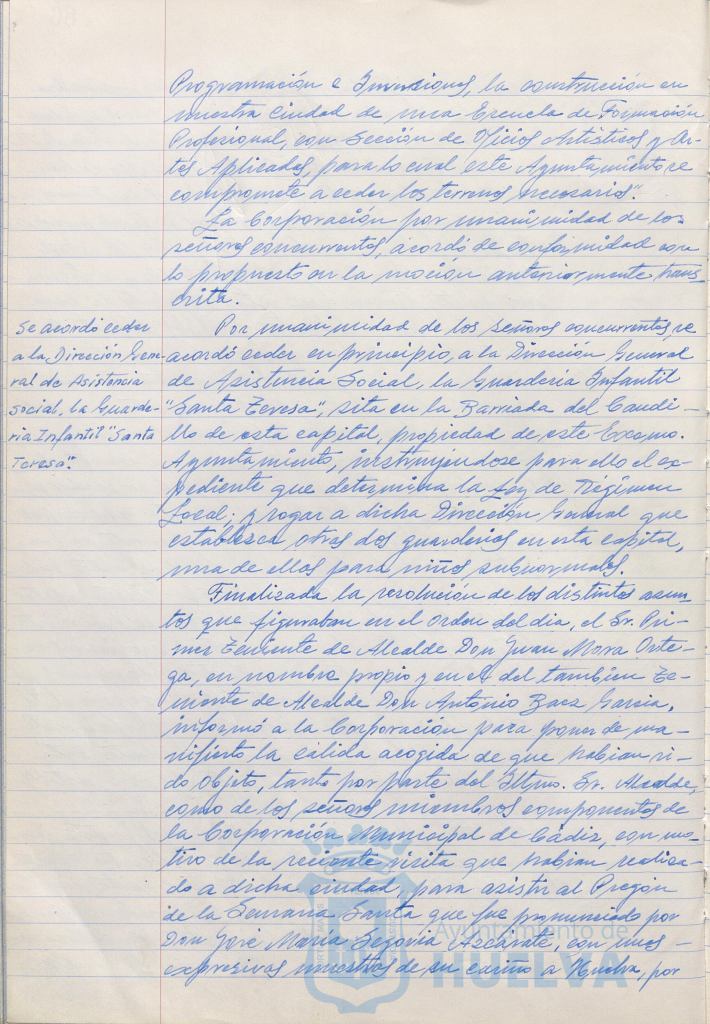 Programación e Inversiones, la construcción en
nuestra Ciudad de una Escuela de Formación
Profesional, con Sección de Oficios Artísticos y Ar-
tes Aplicadas, para lo cual este Ayuntamiento se
compromete a ceder los terrenos necesarios".
La Corporación por unanimidad de los
señores concurrentes, acordó de conformidad con
lo propuesto en la moción anteriormente trans-
crita.
Se acordó ceder
a la Dirección Gene-
ral de Asistencia
Social, la Guarde-
ria Infantil "Santa
Teresa".
Por unanimidad de los señores concurrentes, se
acordó ceder en principio, a la Dirección General
de Asistencia Social, la Guardería Infantil
"Santa Teresa", sita en la Barriada del Caudi-
llo de esta capital, propiedad de este Excmo.
Ayuntamiento, instruyéndose para ello el ex-
pediente que determina la Ley de Régimen
Local; y rogar a dicha Dirección General que
establezca otras dos guarderías en esta capital,
una de ellas para niños subnormales.
Finalizada la resolución de los distintos asun-
tos que figuraban en el orden del dia, el Sr. Pri-
mer Teniente de Alcalde Don Juan Mora Orte-
ga, en nombre propio y en el del tambien Te-
niente de Alcalde Don Antonio Baez Garcia,
informó a la Corporación para poner de ma-
nifiesto la cálida acogida de que habian si-
do objeto, tanto por parte del Iltmo. Sr. Alcalde,
como de los señores miembros componentes de
la Corporación Municipal de Cádiz, con mo-
tivo de la reciente visita que habian realiza-
do a dicha ciudad, para asistir al Pregón
de la Semana Santa que fue pronunciado por
Don José María Segovia Azcárate, con unas
expresivas muestras de su cariño a Huelva, por
Ayuntamiento de
HUELVA